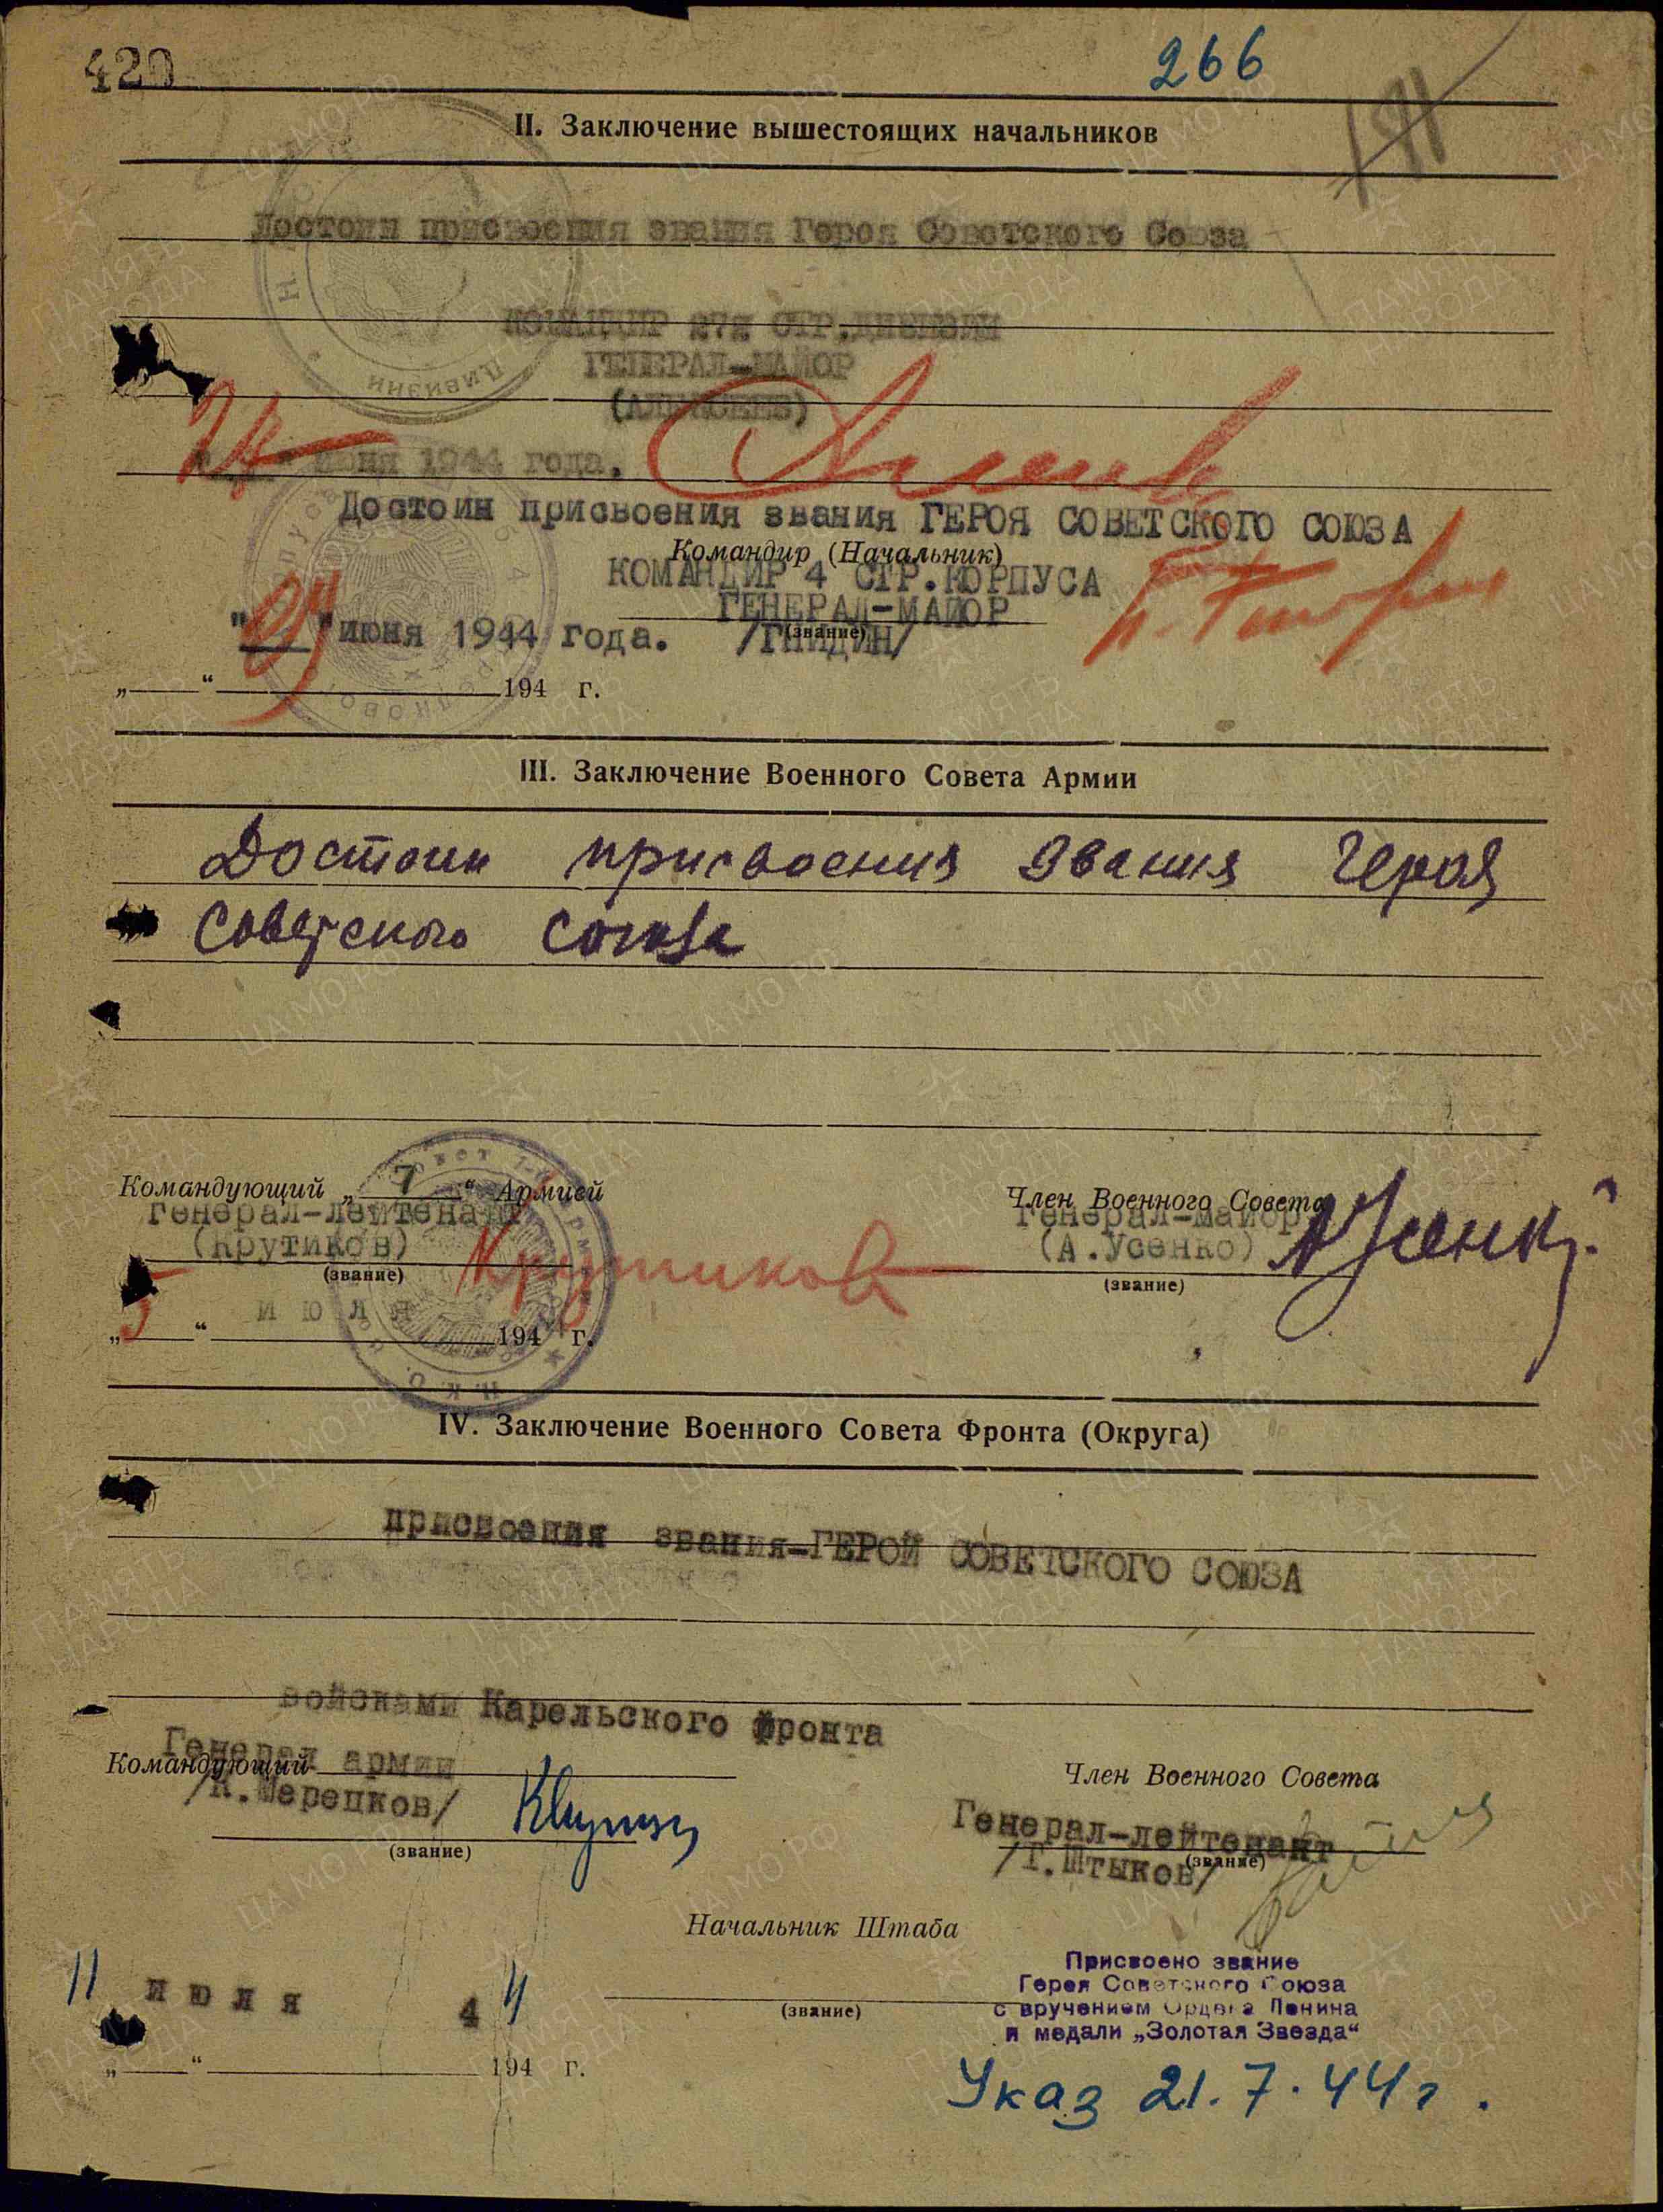 420
266
191
II. Заключение вышестоящих начальников
Достоин присвоения звания Героя Советского Союза
КОМАНДИР 272 СТР.ДИВИЗИИ
ГЕНЕРАЛ-МАЙОР
(АЛЕКСЕЕВ)
июня 1944 года.
Достоин присвоения звания ГЕРОЯ СОВЕТСКОГО СОЮЗА
Командир (Начальник)
КОМАНДИР 4 СТР.КОРПУСА
ГЕНЕРАЛ-МАЙОР
(звание)
"29" июня 1944 года. /ГНИДИН/
„ “ 194 г.
III. Заключение Военного Совета Армии
Достоин присвоения звания Героя
Советского Союза
Командующий „ 7 “ Армией
Генерал-лейтенант
(Крутиков)
(звание)
Крутиков
Член Военного Совета
Генерал-майор
(А.Усенко)
(звание)
„5“ июля 194 г.
IV. Заключение Военного Совета Фронта (Округа)
присвоения звания-ГЕРОЙ СОВЕТСКОГО СОЮЗА
войсками Карельского фронта
Командующий Генерал армии
/К.Мерецков/
(звание)
Член Военного Совета
Генерал-лейтенант
/Т.Штыков/
(звание)
Начальник Штаба
(звание)
11 июля 44
„ “ 194 г.
Присвоено звание
Героя Советского Союза
с вручением Ордена Ленина
и медали „Золотая Звезда“
Указ 21.7.44г.